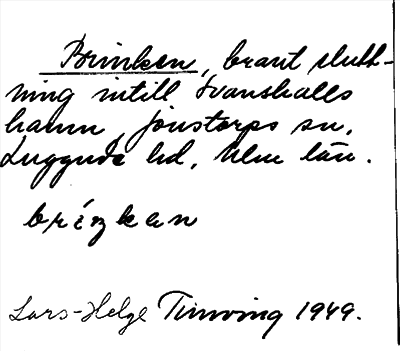 Brinken, brant slutt-
ning intill Svanshalls
hamn, Jonstorps sn,
Luggude hd, Mlm län.
briŋkan
Lars-Helge Tunving 1949.